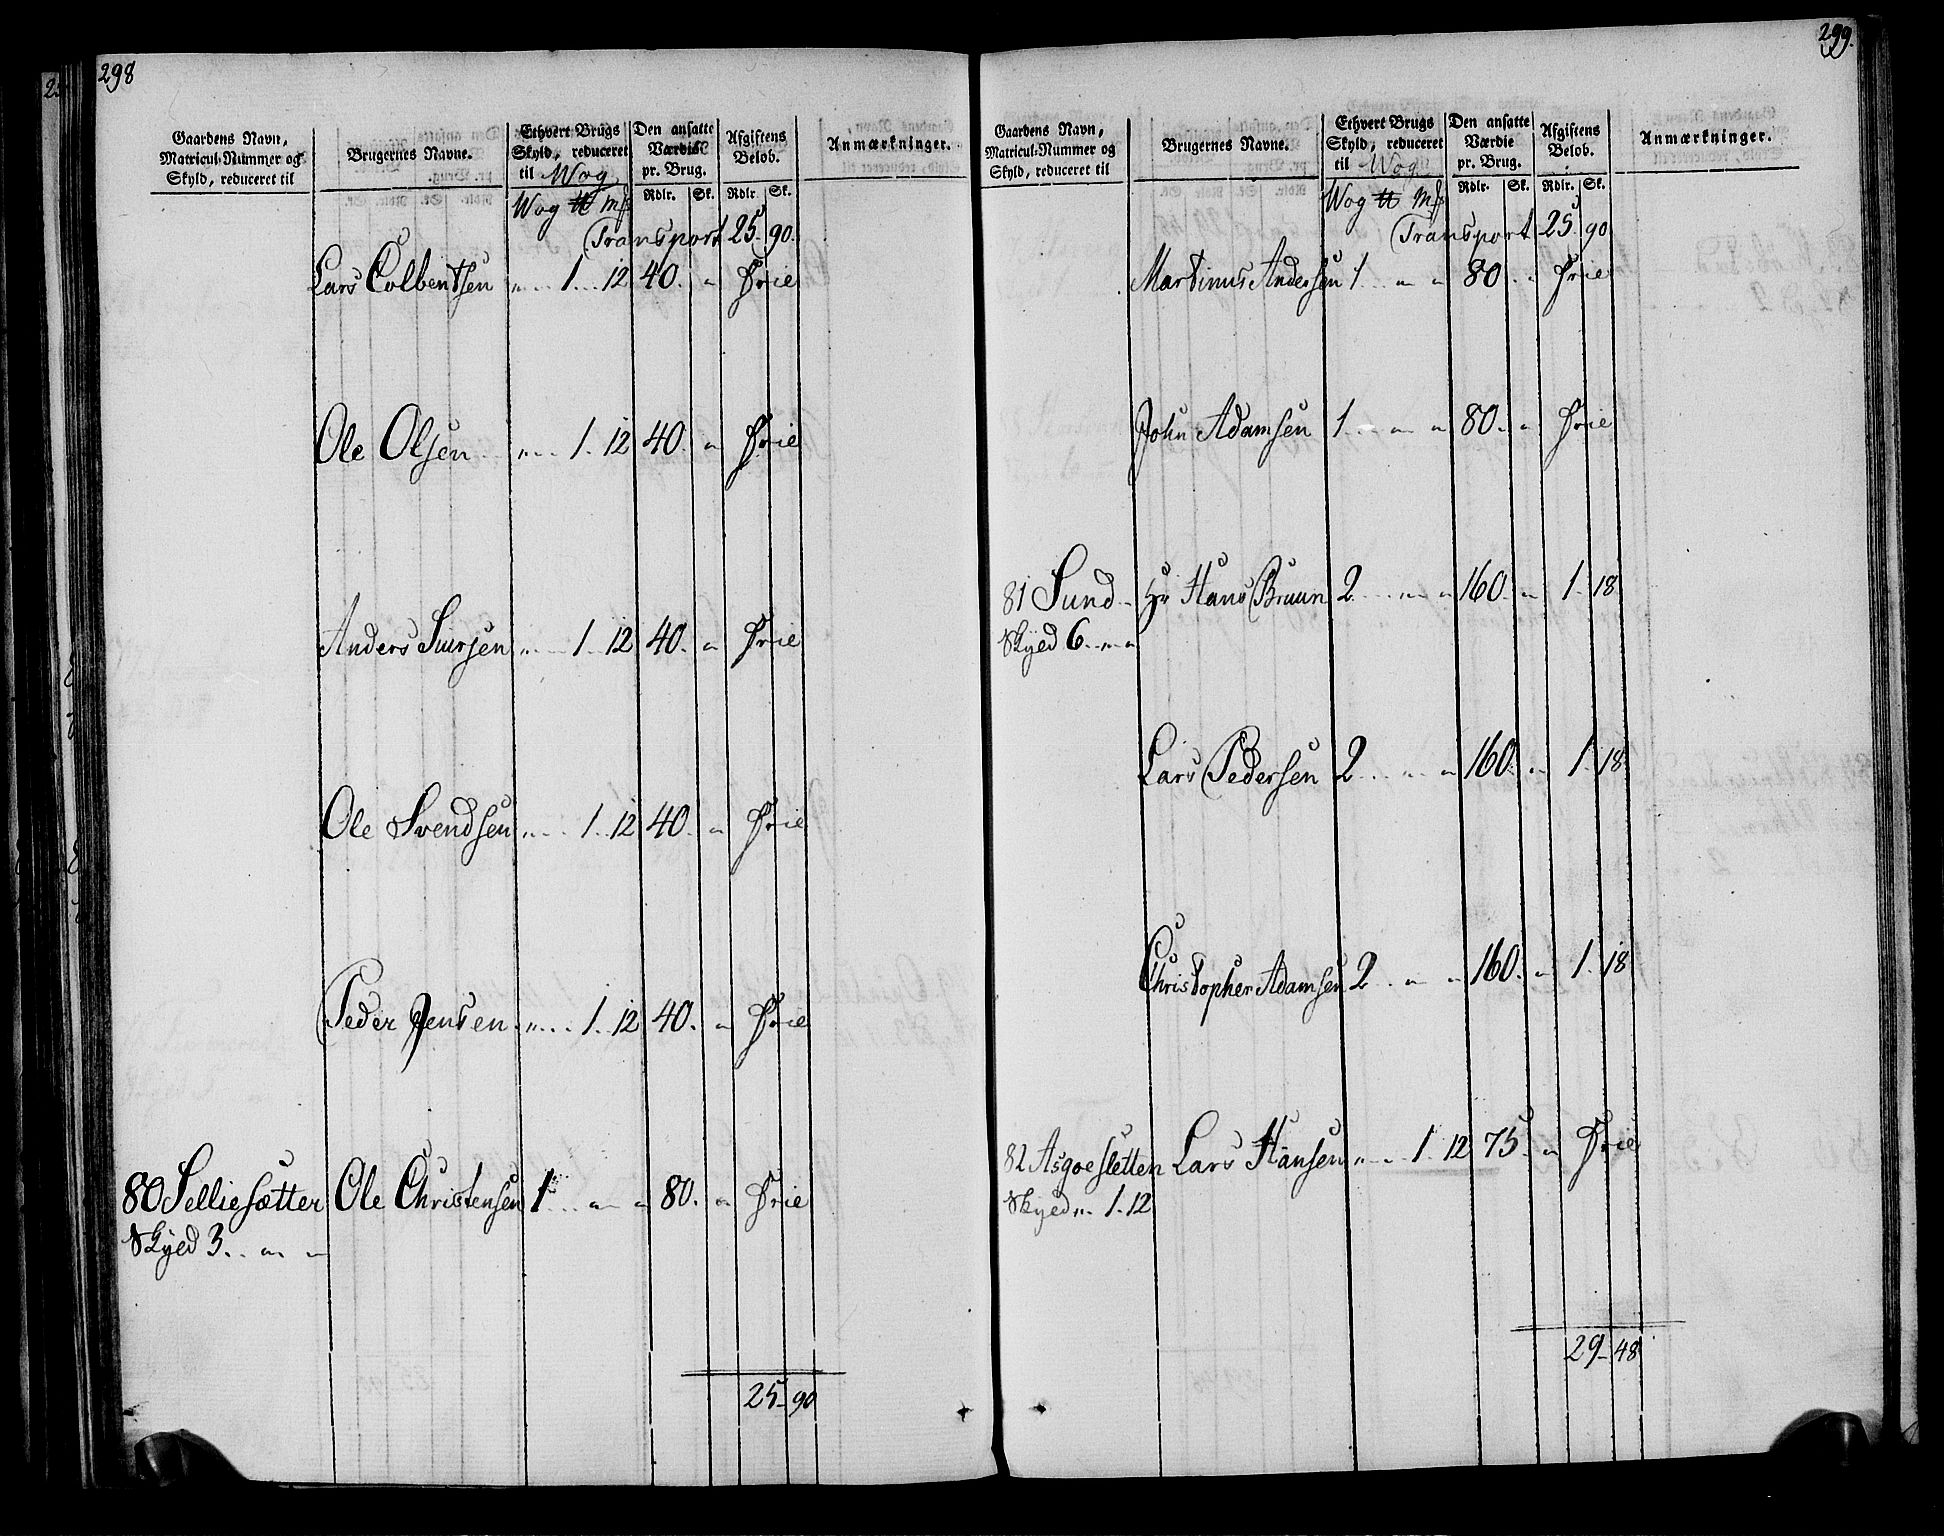 298
Gaardens Navn, Matricul-Nummer og Skyld, reduceret til
Brugernes Navne.
Ethvert Brugs Skyld, reduceret til Wog
Den ansatte Værdie pr. Brug.
Afgiftens Beløb.
Anmærkninger.
Wog ℔ Mk Rdlr. Sk. Rdlr. Sk.
Transport 25. 90.
Lars Colbentsen „ 1 12 40. „ Frie
Ole Olsen „ 1. 12 40. „ Frie
Anders Siursen „ 1 12 40. „ Frie
Ole Svendsen „ 1. 12 40. „ Frie
Peder Jensen „ 1. 12 40. „ Frie
80 Selliesætter Ole Christensen 1 „ „ 80. „ Frie
Skyld 3. „ „
25 - 90
299.
Gaardens Navn, Matricul-Nummer og Skyld, reduceret til
Brugernes Navne.
Ethvert Brugs Skyld, reduceret til Wog
Den ansatte Værdie pr. Brug.
Afgiftens Beløb.
Anmærkninger.
Wog ℔ Mk Rdlr. Sk. Rdlr. Sk.
Transport 25. 90
Martinus Andersen 1 „ „ 80 „ Frie
John Adamsen 1 „ „ 80. „ Frie
81 Sund Hr Hans Bruun 2 „ „ 160. „ 1. 18
Skyld 6. „ „
Lars Pedersen 2 „ „ 160. „ 1. 18
Christopher Adamsen 2 „ „ 160. „ 1. 18
82 Asgoesletten Lars Hansen „ 1 12 75. „ Frie
Skyld „ 1. 12
29 - 48